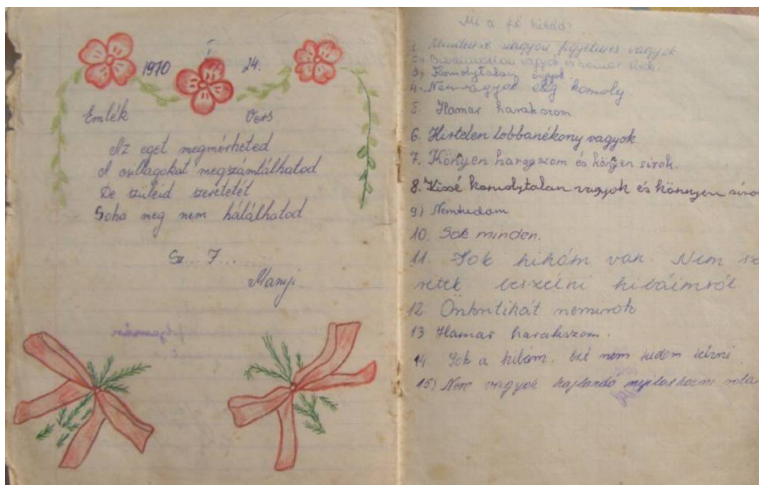 1970 24.
Emlék Vers
Az eget megmérheted
A csillagokat megszámlálhatod
De szüleid szeretetét
Soha meg nem hálálhatod
Sz. J.
Manyi
Mi a fő hibád?
1. Mindenre nagyon figyelmes vagyok
2. vagyok és hamar
3. Komolytalan vagyok
4. Nem vagyok elég komoly
5. Hamar harakszom
6. Hirtelen lobbanékony vagyok
7. Könyen haragszom és könyen sirok.
8. Kissé komolytalan vagyok és könnyen sirok
9) Nemtudom
10. Sok minden.
11. Sok hibám van. Nem sze
retek beszélni hibáimról
12. Önkritikát nemirok
13 Hamar harakszom.
14. Sok a hibám. Ezt nem tudom leirni.
15) Nem vagyok hajlandó nyilatkozni róla